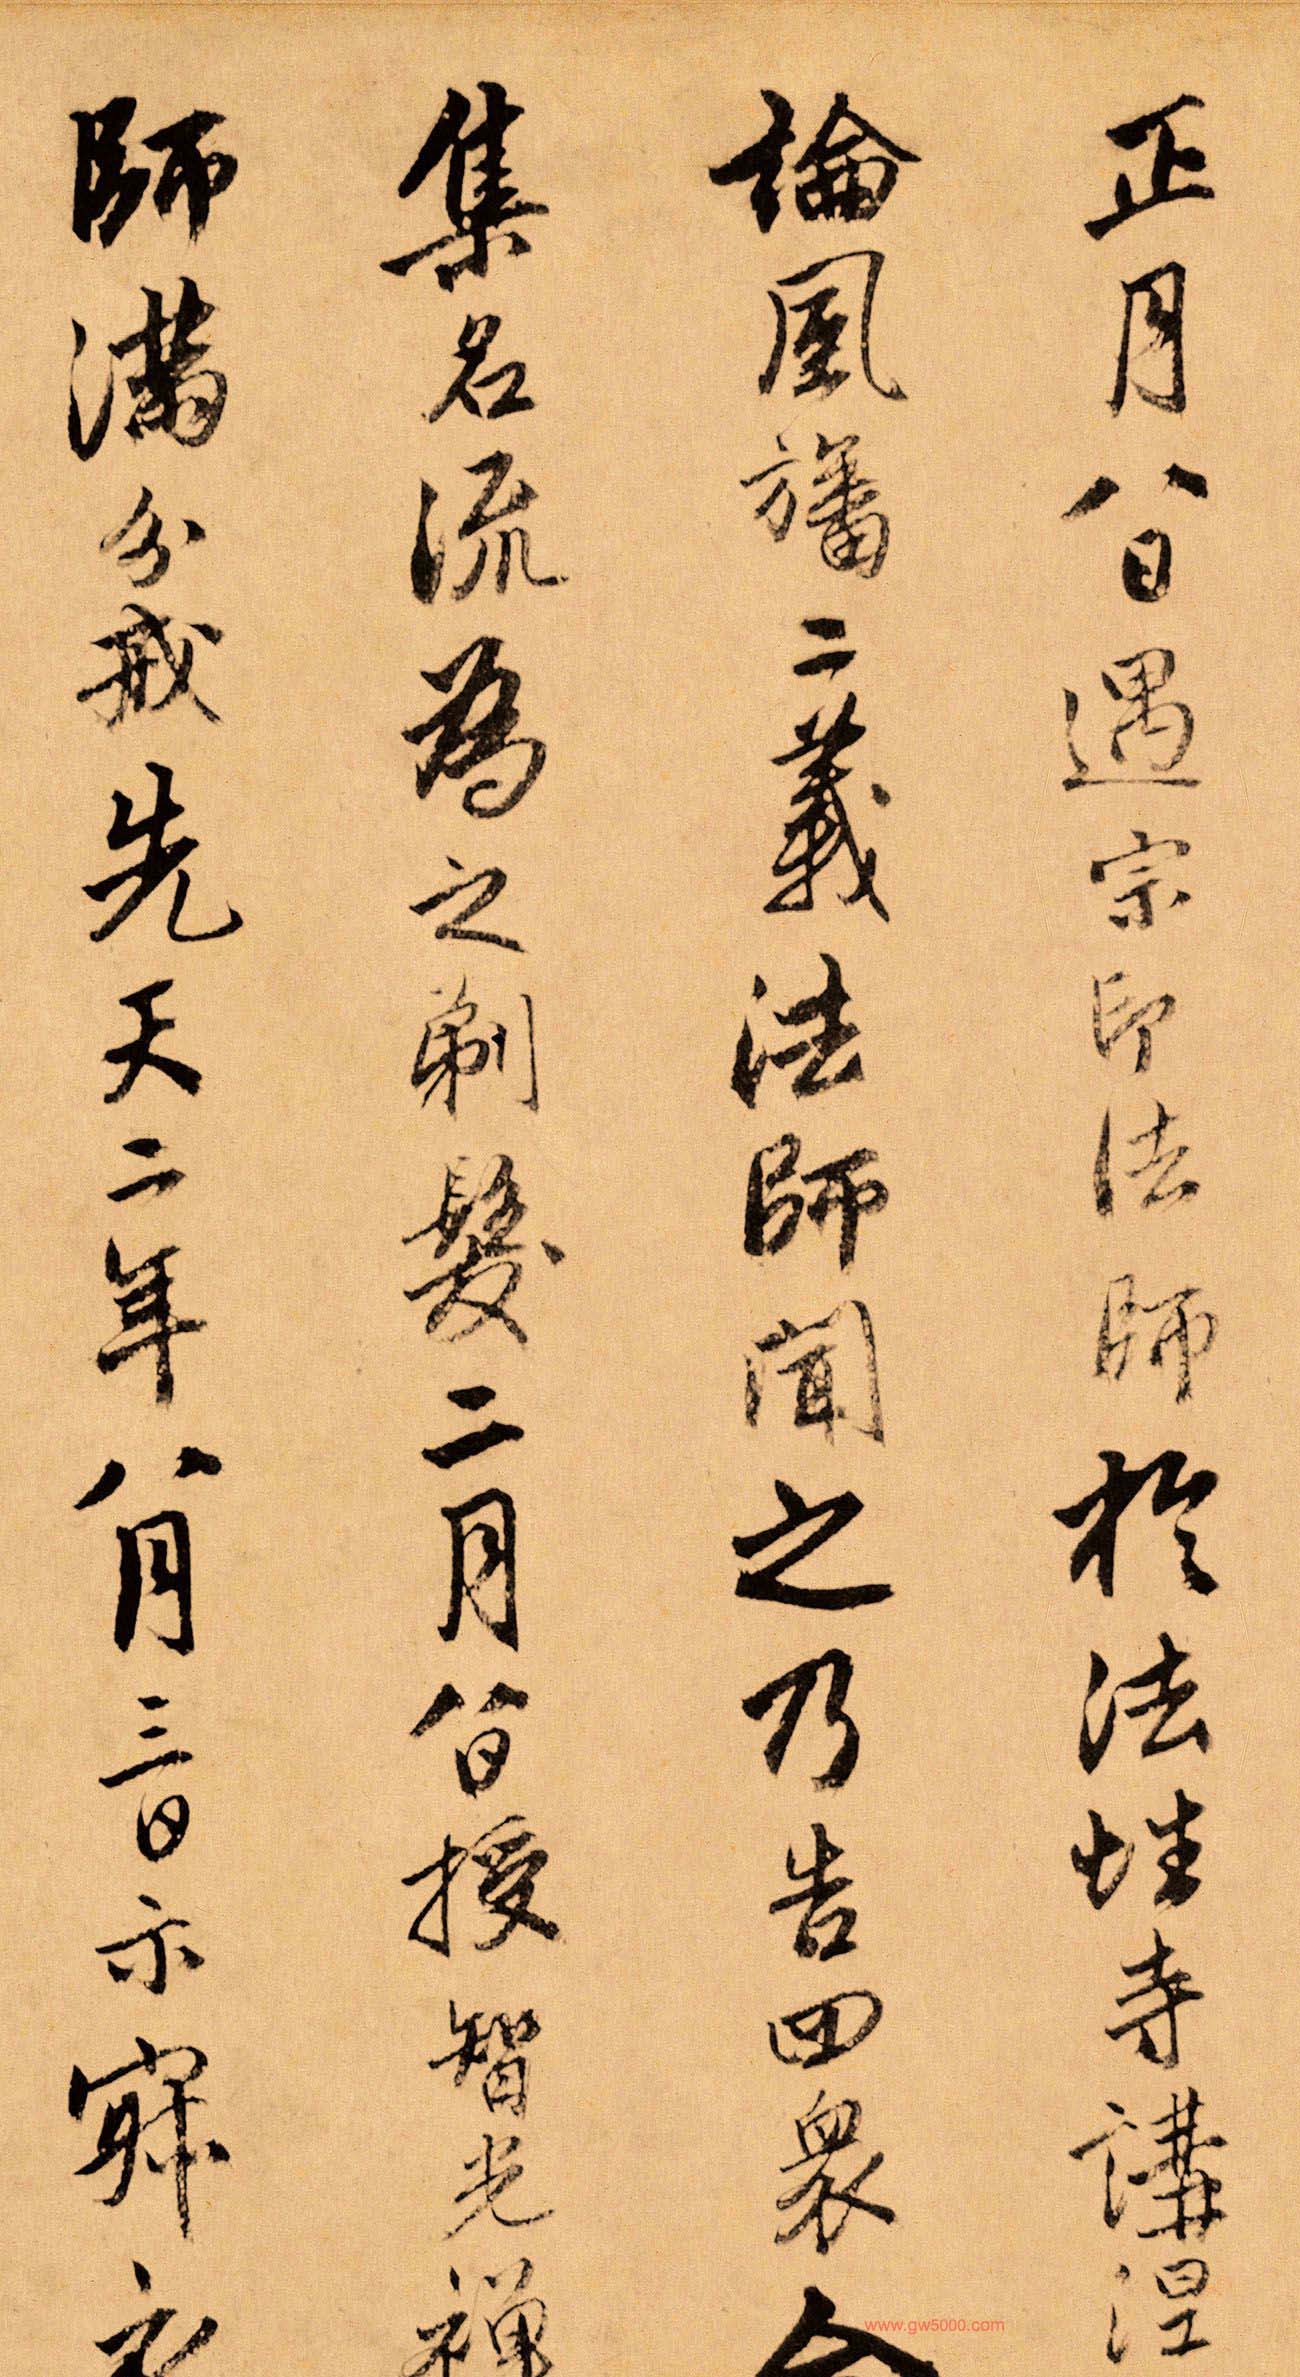 正月八日遇宗印法師於法性寺講涅
論風旛二義法師聞之乃告四衆
集名流為之剃髮二月八日授智光禪
師滿分戒先天二年八月三日示寂
www.gw5000.com